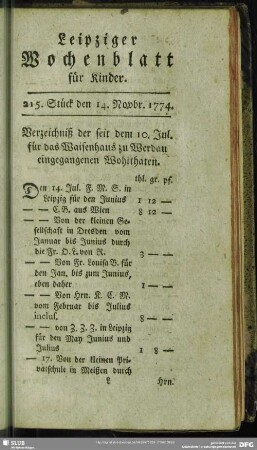 Leipziger
Wochenblatt
für Kinder.
215. Stück den 14. Novbr. 1774.
Verzeichniß der seit dem 10. Jul.
für das Waisenhaus zu Werdau
eingegangenen Wohlthaten.
thl. gr. pf.
Den 14. Jul. F. M. S. in
Leipzig für den Junius 1 12 —
— — C. B. aus Wien 8 12 —
— — Von der kleinen Ge-
sellschaft in Dresden vom
Januar bis Junius durch
die Fr. O. L. von R. 3 — —
— — Von Fr. Louisa B. für
den Jan. bis zum Junius,
eben daher 1 — —
— — Von Hrn. K. C. M.
vom Februar bis Julius
inclus. 8 — —
— — von Z. Z. Z. in Leipzig
für den May Junius und
Julius 1 8 —
— 17. Von der kleinen Pri-
vatschule in Meissen durch
L Hrn.
SLUB
DFG